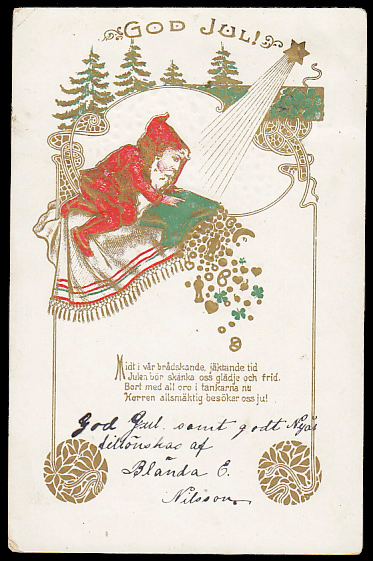 GOD JUL!
Midt i vår brådskande, jäktande tid
Julen bör skänka oss glädje och frid.
Bort med all oro i tankarna nu
Herren allsmäktig besöker oss ju!
God Jul samt godt Nyår
tillönskas af
Blända E.
Nilsson